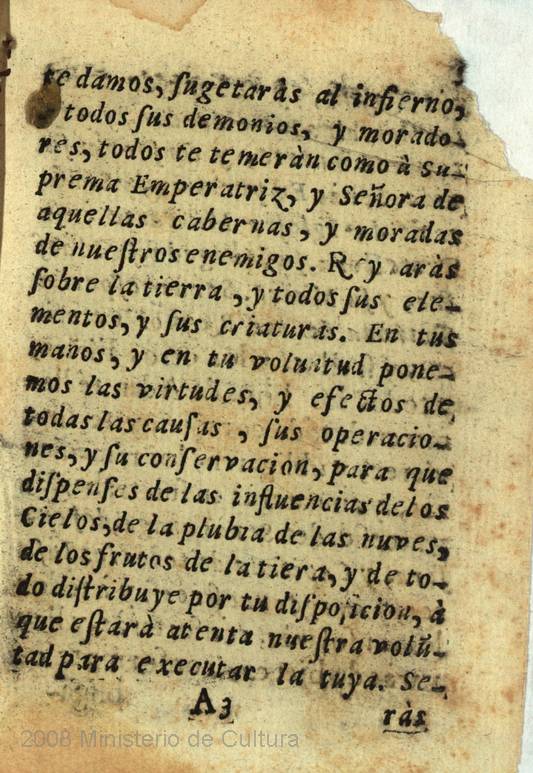 te damos, ſugetaràs al infierno,
todos ſus demonios, y morado-
res, todos te temeràn como à Su-
prema Emperatriz, y Señora de
aquellas cabernas, y moradas
de nueſtros enemigos. R y aràs
ſobre la tierra, y todos ſus ele-
mentos, y ſus criaturas. En tus
manos, y en tu voluntud pone-
mos las virtudes, y efectos de
todas las cauſas, ſus operacio-
nes, y ſu conſervacion, para que
diſpenſes de las influencias de los
Cielos, de la plubia de las nuves,
de los frutos de la tiera, y de to-
do diſtribuye por tu diſpoſicion, à
que eſtarà atenta nueſtra volũ-
tad para executar la tuya. Se-
A3
ràs
2008 Ministerio de Cultura